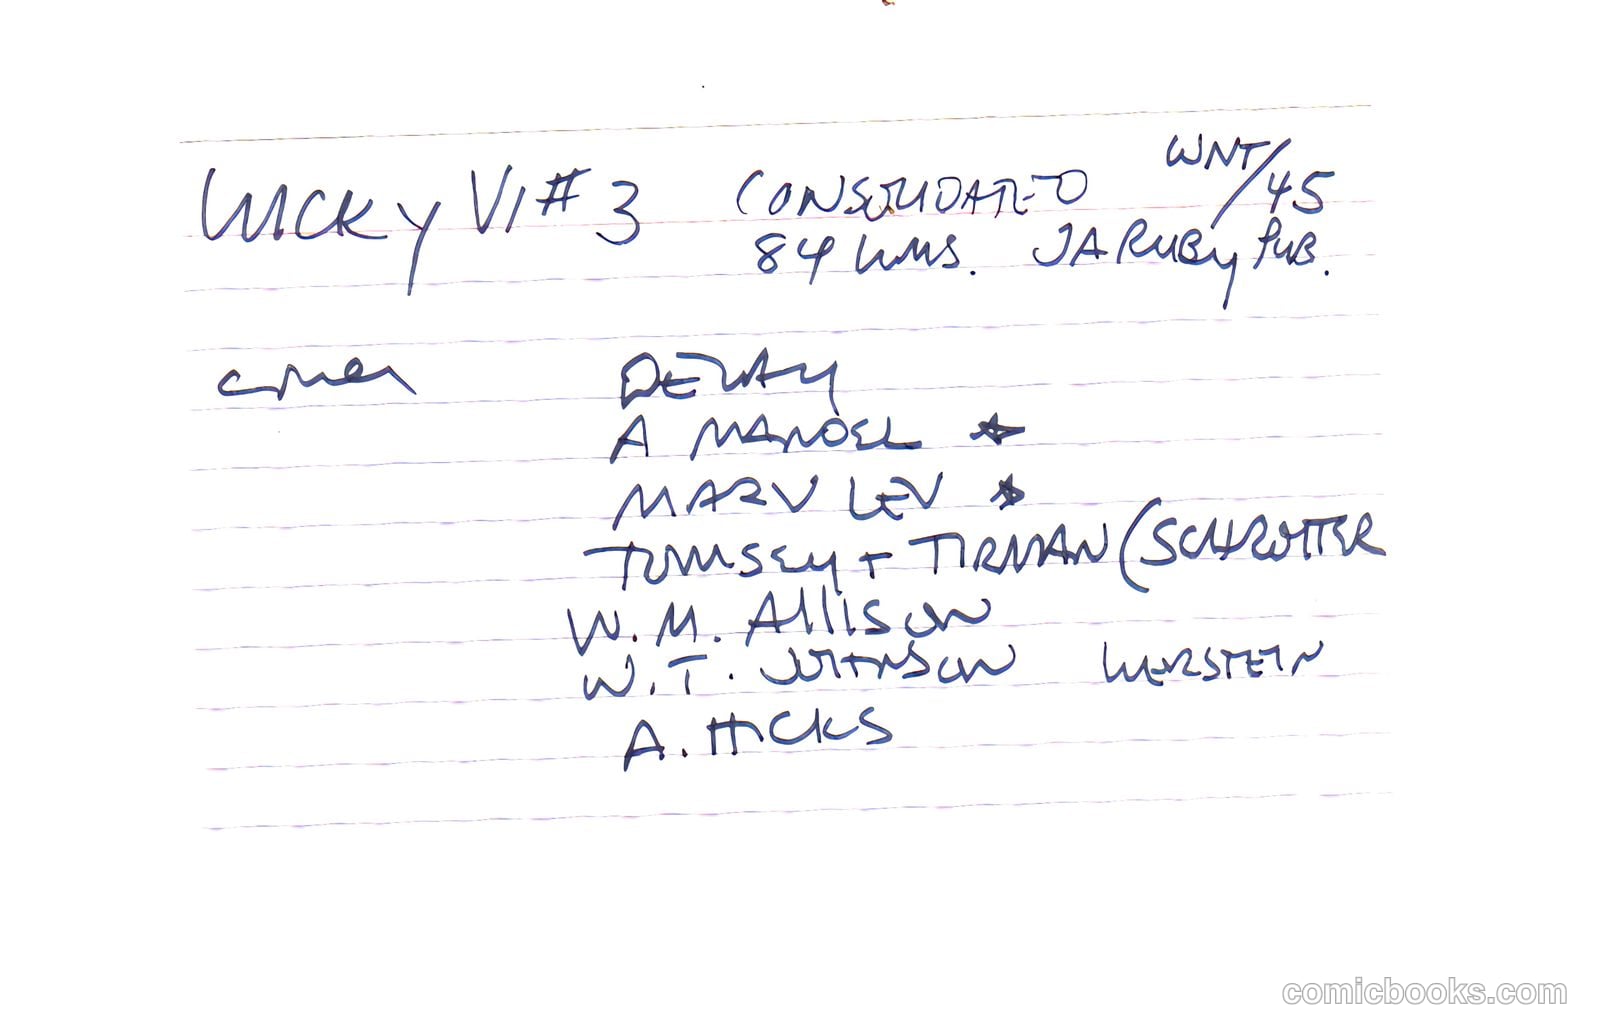 LUCKY V1# 3 CONSOLIDATED WNT/45
84 WMS. JA RUBY PUB.
COVER
A MANDEL ★
MARV LEV ★
TUMSEY + TIRMAN (SCHROTTER
W. M. Allison
W. T. JOHNSON WERSTEIN
A. HICKS
comicbooks.com